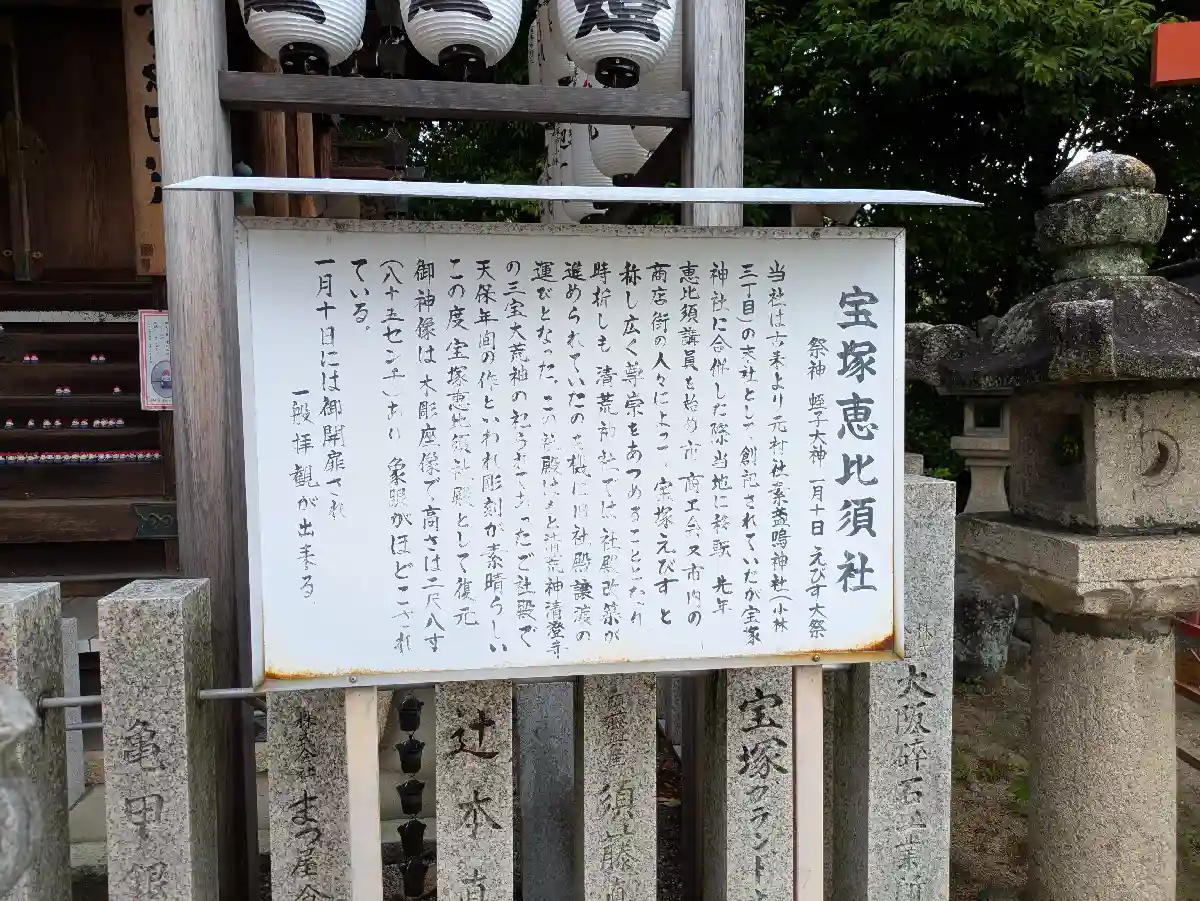 宝塚恵比須社
祭神 蛭子大神 一月十日 えびす大祭
当社は古来より元村社素盞嗚神社(小林
三丁目)の末社として創祀されていたが宝塚
神社に合併した際当地に移転 先年
恵比須講員を始め市、商工会又市内の
商店街の人々によって宝塚えびすと
称し広く尊崇をあつめることとなり
時折しも清荒神社では社殿改築が
進められていたのを機に旧社殿譲渡の
運びとなった。この社殿はもと清荒神清澄寺
の三宝大荒神の祀られてあったご社殿で
天保年間の作といわれ彫刻が素晴らしい
この度宝塚恵比須社殿として復元
御神像は木彫座像で高さは二尺八寸
(八十五センチ)あり 象眼がほどこされ
ている。
一月十日には御開扉され
一般拝観が出来る。
亀甲銀
株式会社 まつ屋
辻本
須藤
宝塚グランド
大阪砕石工業所